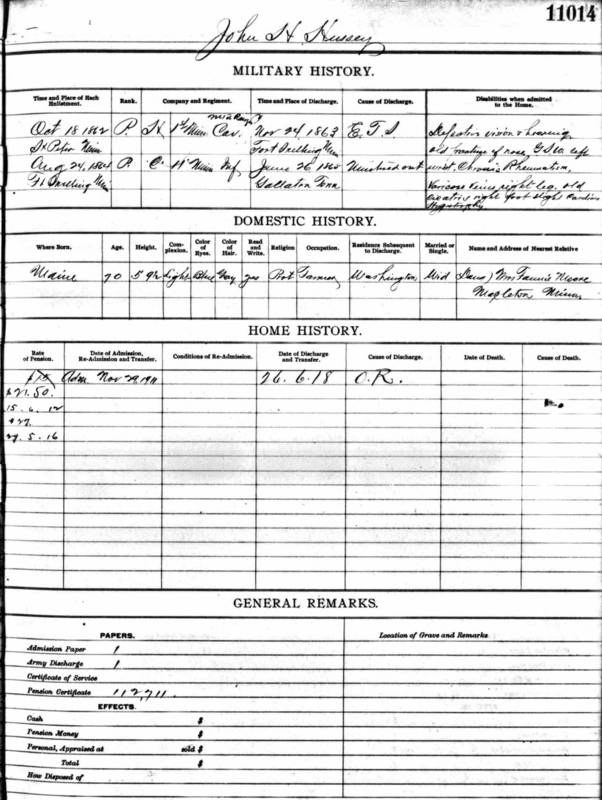 11014
John H Hussey
MILITARY HISTORY.
Time and Place of Each Enlistment. Rank. Company and Regiment. Time and Place of Discharge. Cause of Discharge. Disabilities when admitted to the Home.
Oct 18 1862 P. H. 1st Minn Cav. Nov 24 1863 E. T. S. Defective vision & hearing
St Peter Minn Fort Snelling Minn old fracture of nose, G S W. left
Aug 24, 1864 P. C. 11" Minn Inf. June 26 1865 Mustered out wrist. Chronic Rheumatism,
Ft Snelling Minn Gallatin Tenn Varicose Veins right leg, old
right foot slight Cardiac
Hypertrophy
DOMESTIC HISTORY.
Where Born. Age. Height. Complexion. Color of Eyes. Color of Hair. Read and Write. Religion Occupation. Residence Subsequent to Discharge. Married or Single. Name and Address of Nearest Relative
Maine 70 5 9½ Light Blue Gray yes Prot Farmer Washington Wid (Daur) Mrs Fannie Moore
Mapleton Minn
HOME HISTORY.
Rate of Pension. Date of Admission, Re-Admission and Transfer. Conditions of Re-Admission. Date of Discharge and Transfer. Cause of Discharge. Date of Death. Cause of Death.
Adm Nov 29, 1911 26.6.18 O.R.
$21.50.
15.6.12
$27.
29.5.16
GENERAL REMARKS.
PAPERS. Location of Grave and Remarks
Admission Paper 1
Army Discharge 1
Certificate of Service
Pension Certificate 112,711.
EFFECTS.
Cash $
Pension Money $
Personal, Appraised at sold $
Total $
How Disposed of